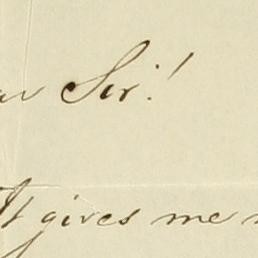 Sir!
It gives me